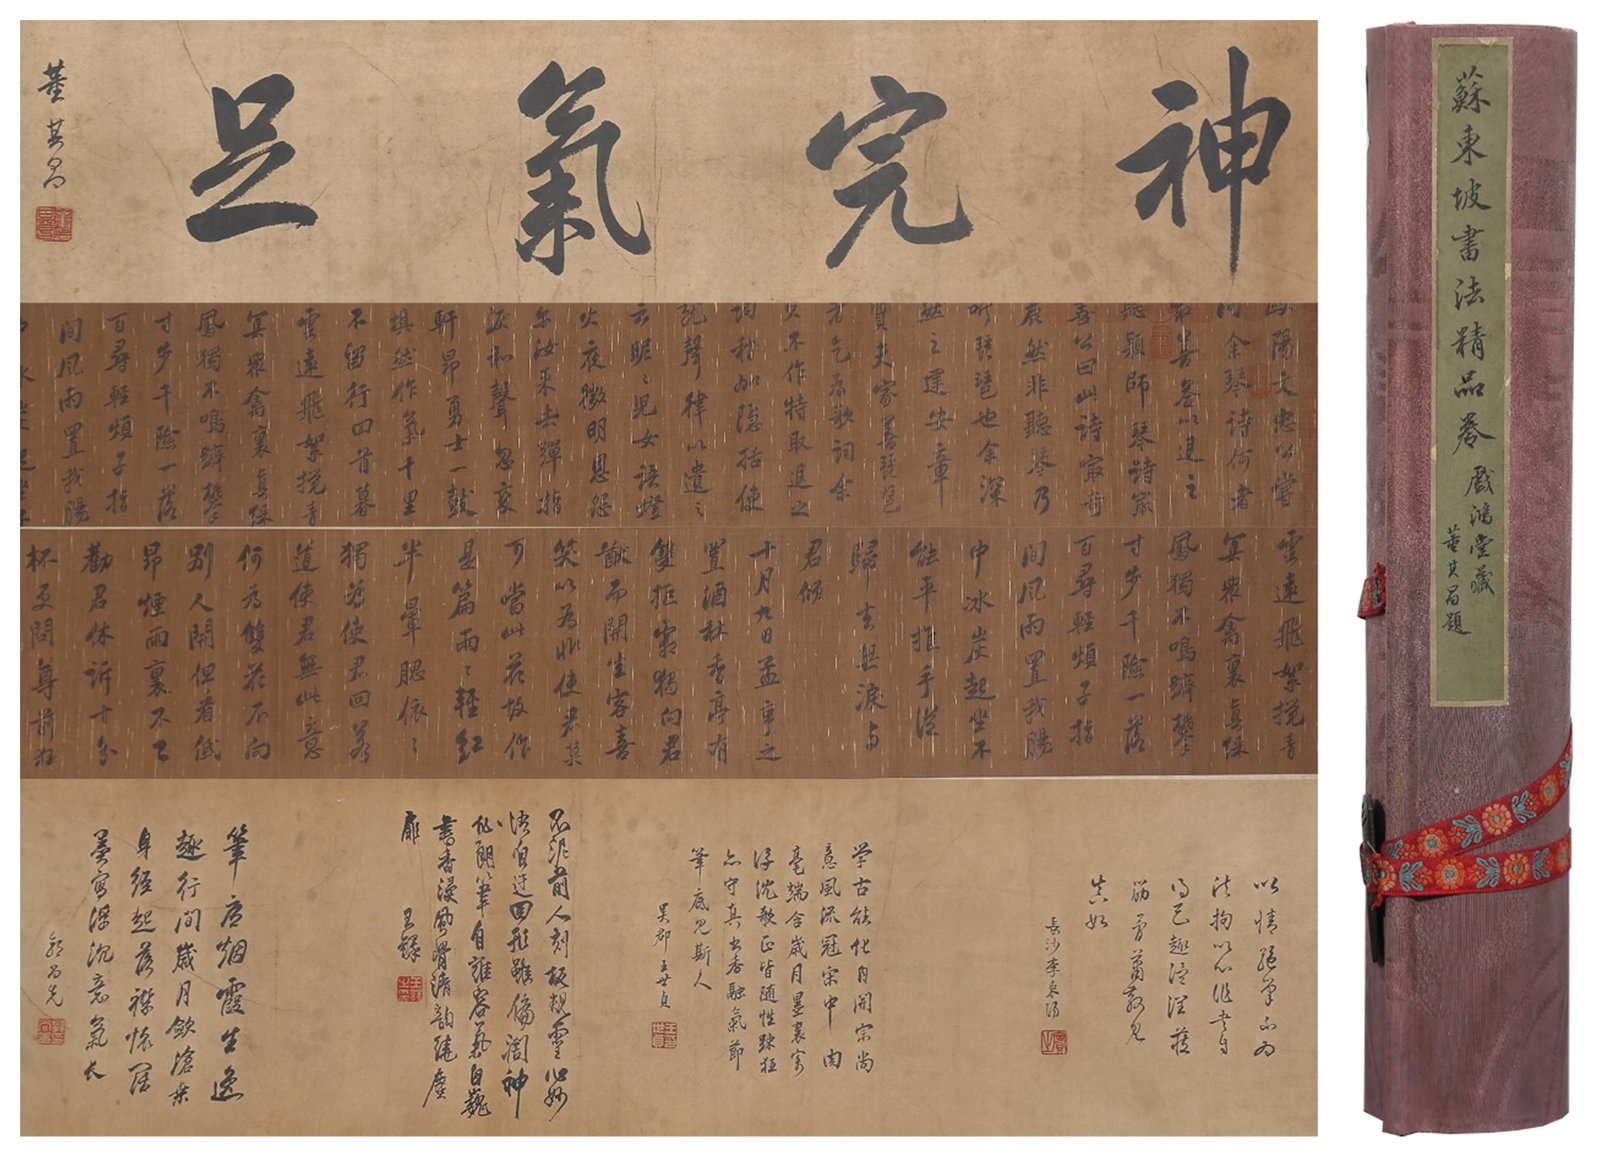 神完氣足
董其昌
歐陽文忠公嘗
問余琴詩何者
最善答以退之
聽穎師琴詩最
善公曰此詩最奇
麗然非聽琴乃
聽琵琶也余深
然之建安章
質夫家善琵琶
者乞為歌詞余
久不作特取退之
詞稍加隱括使
就聲律以遺之
云昵〻兒女語燈
火夜微明恩怨
尔汝來去彈指
淚和聲忽變
軒昂勇士一鼓
填然作氣千里
不留行回首暮
雲遠飛絮攪青
冥衆禽裏真綵
鳳獨不鳴躋攀
寸步千險一落
百尋輕煩子指
間風雨置我腸
中冰炭起坐不
雲遠飛絮攪青
冥衆禽裏真綵
鳳獨不鳴躋攀
寸步千險一落
百尋輕煩子指
間風雨置我腸
中冰炭起坐不
能平推手從
歸去無淚與
君傾
十月九日孟亨之
置酒秋香亭有
雙拒霜獨向君
猷而開坐客喜
笑以為非使君莫
可當此花故作
是篇兩〻輕紅
半暈腮依〻
獨為使君回若
道使君無此意
何為雙花不向
別人開但看低
昂煙雨裏不已
勸君休訴十分
杯更問尊前狂
以情絕筆不為
法拘以心作書自
得已趣
真如
長沙李東陽
学古能化内開宗尚
意風流冠宋中肉
毫端含歲月墨裏寄
浮沈欹正皆随性疎狂
亦守真書香融氣節
筆底見斯人
吳郡王世貞
不泥前人刻板規靈心妙
悟自迂回形雖偏闊神
化朗筆自雍容氣自巍
書香漫與骨清韵繞塵
扉
王鐸
筆底烟霞生逸
趣行間歲月斂滄桑
身經起落襟懷闊
墨寫浮沉意氣長
蘇東坡書法精品卷
戲鴻堂藏
董其昌題